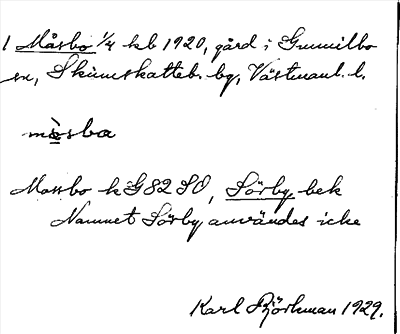 1 Måsbo 1/4 kb 1920, gård i Gunnilbo
sn, Skinnskatteb. bg, Västmanl. l.
måsba
Massbo k G 82 SO, Sörby bek
Namnet Sörby användes icke
Karl Björkman 1929.